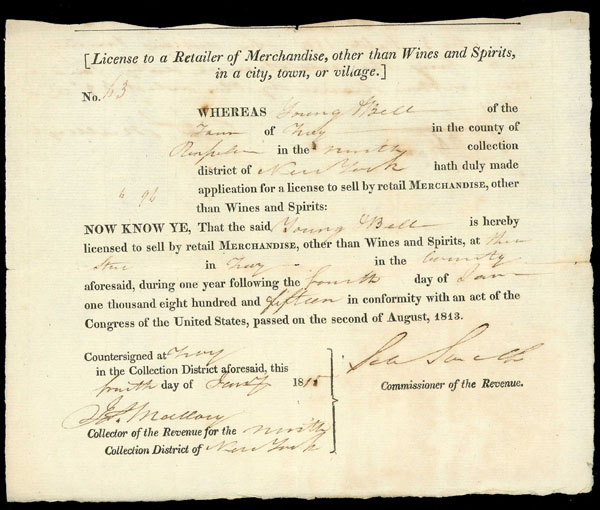 [License to a Retailer of Merchandise, other than Wines and Spirits,
in a city, town, or village.]
No. 63
WHEREAS Young & Bell of the
Town of Troy in the county of
in the ninth collection
district of New York hath duly made
application for a license to sell by retail MERCHANDISE, other
than Wines and Spirits:
NOW KNOW YE, That the said Young & Bell is hereby
licensed to sell by retail MERCHANDISE, other than Wines and Spirits, at their
Store in Troy in the County
aforesaid, during one year following the fourth day of
one thousand eight hundred and fifteen in conformity with an act of the
Congress of the United States, passed on the second of August, 1813.
Countersigned at Troy
in the Collection District aforesaid, this
fourth day of 1815
Smith
Commissioner of the Revenue.
Collector of the Revenue for the ninth
Collection District of New York